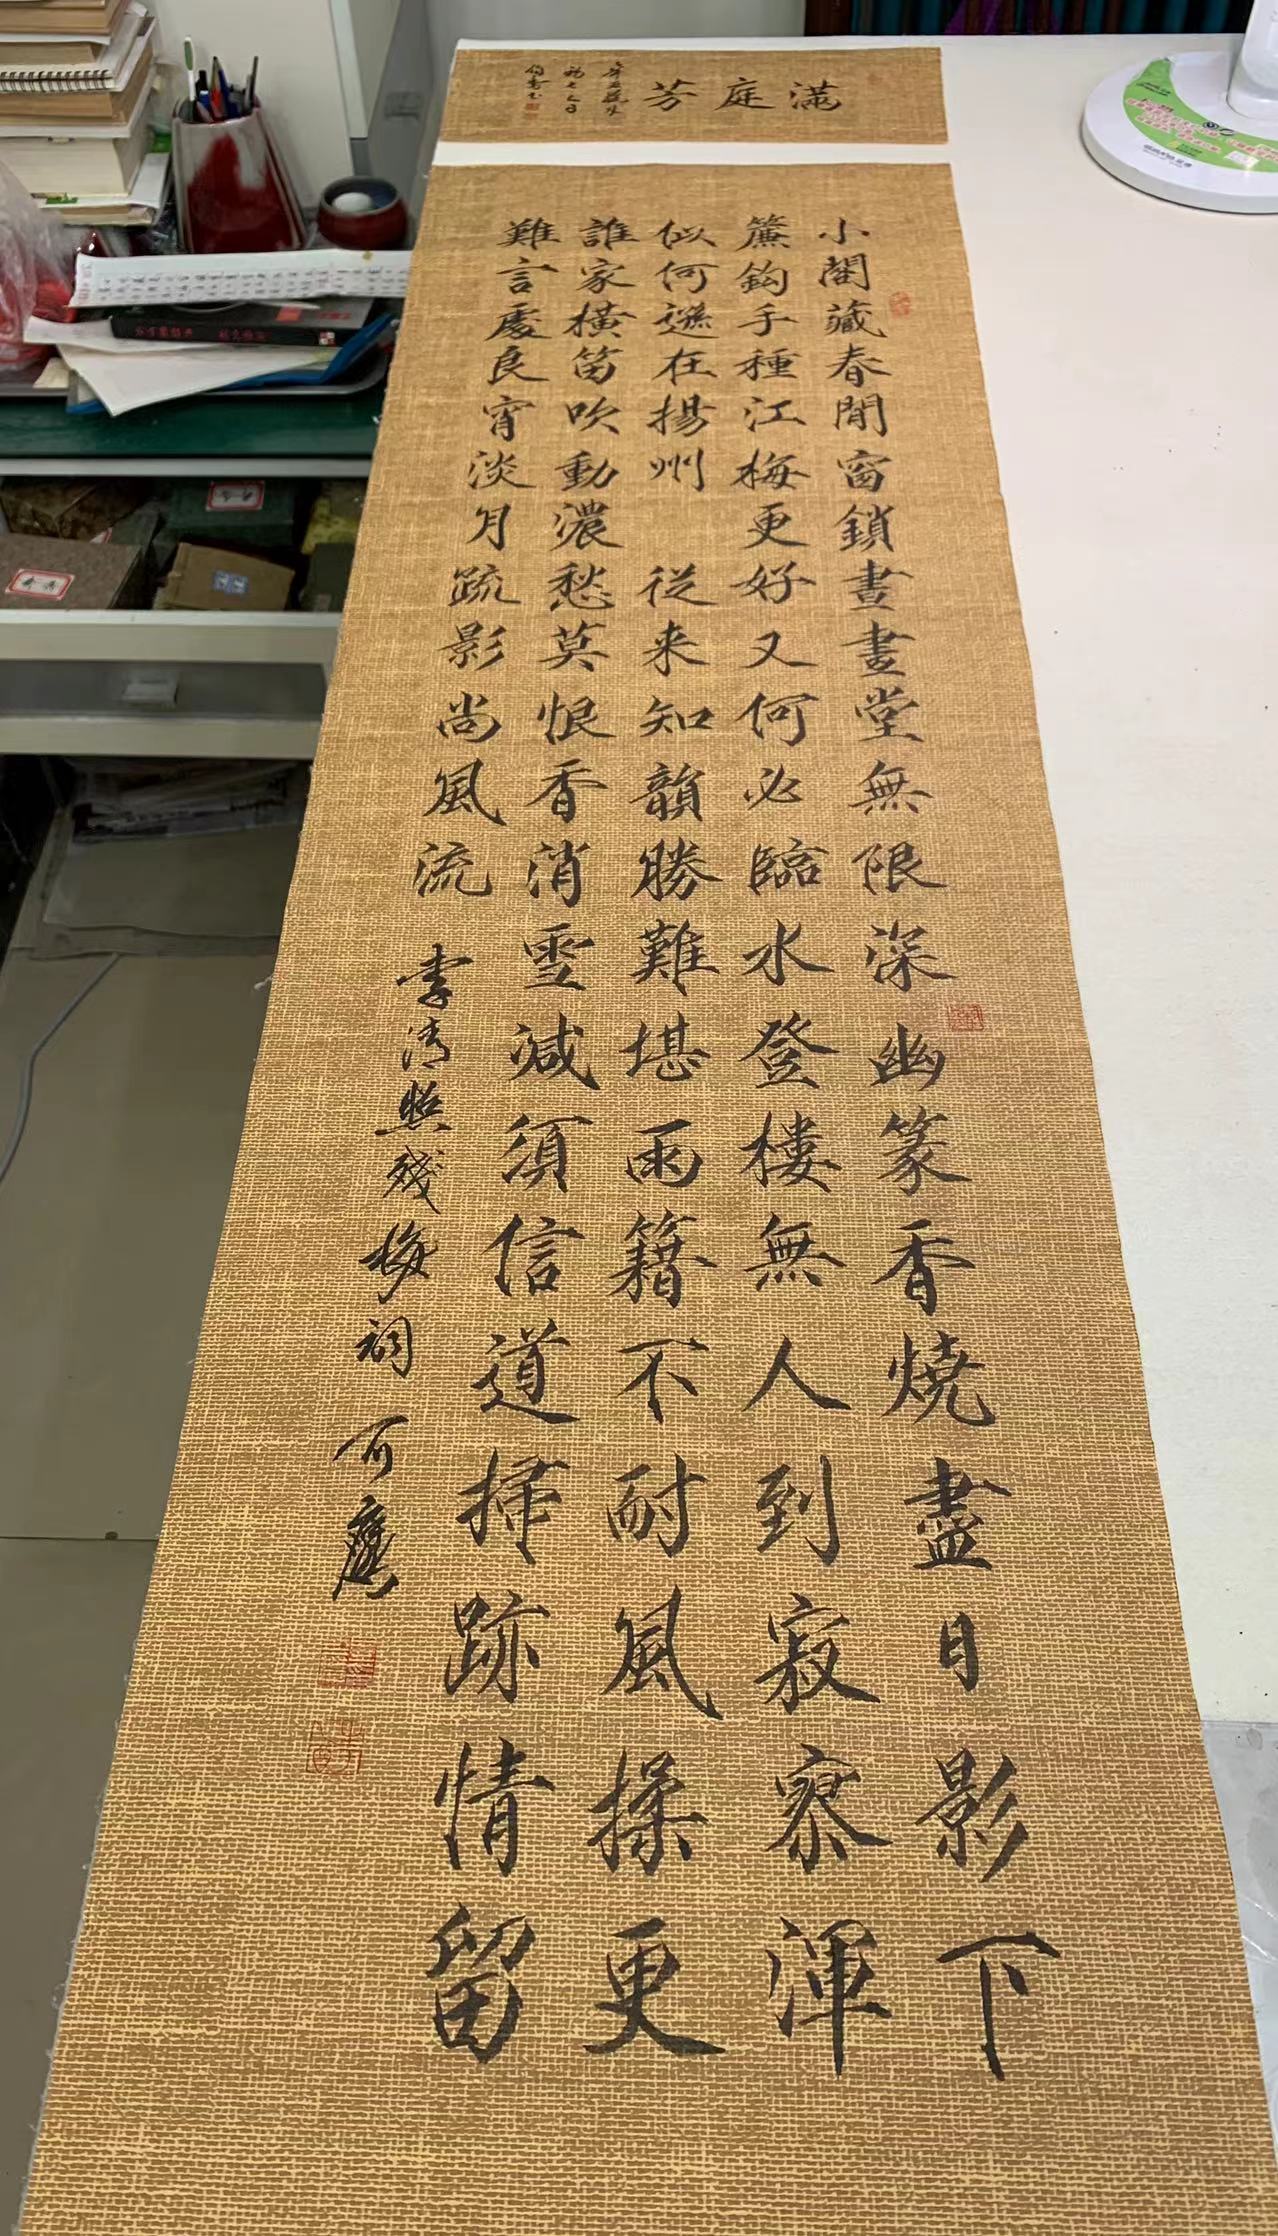 满庭芳
小閣藏春閒窗鎖晝畫堂無限深幽篆香燒盡日影下
簾鈎手種江梅更好又何必臨水登樓無人到寂寥渾
似何遜在揚州 從来知韻勝難堪雨籍不耐風揉更
誰家橫笛吹動濃愁莫恨香消雪減須信道掃跡情留
難言處良宵淡月疏影尚風流 李清照殘梅詞